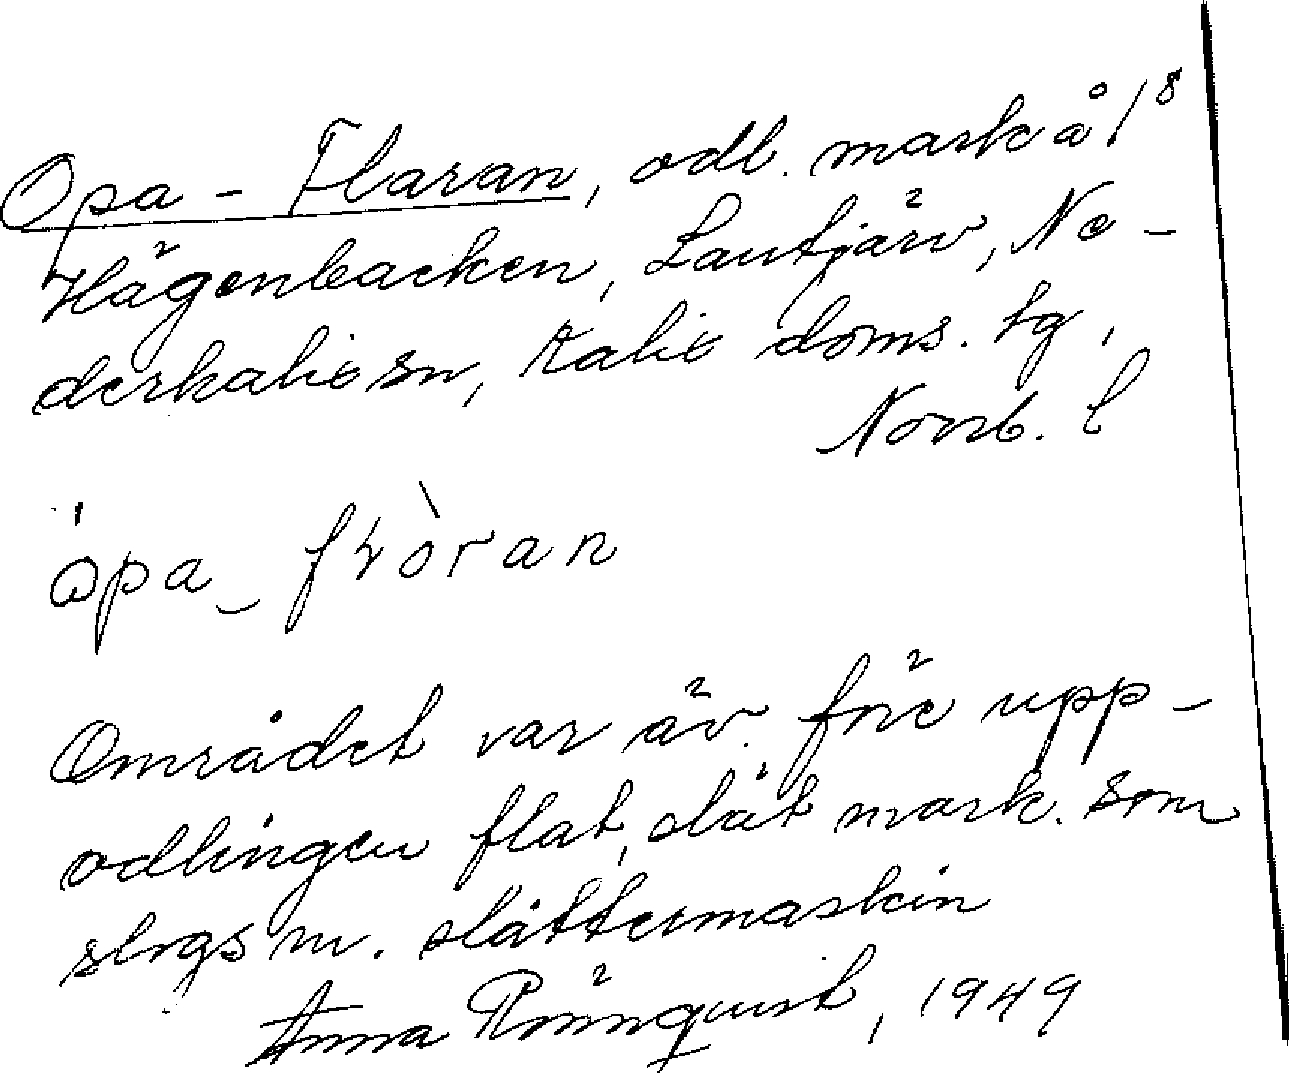 Opa-Flaran, odl. mark å 1⁸
Hägenbacken, Lantjärv, Ne-
derkalix sn, Kalix doms. tg,
Norrb. l
Området var äv. före upp-
odlingen flat, slät mark. som
slogs m. slåttermaskin
Anna Rönnqvist, 1949